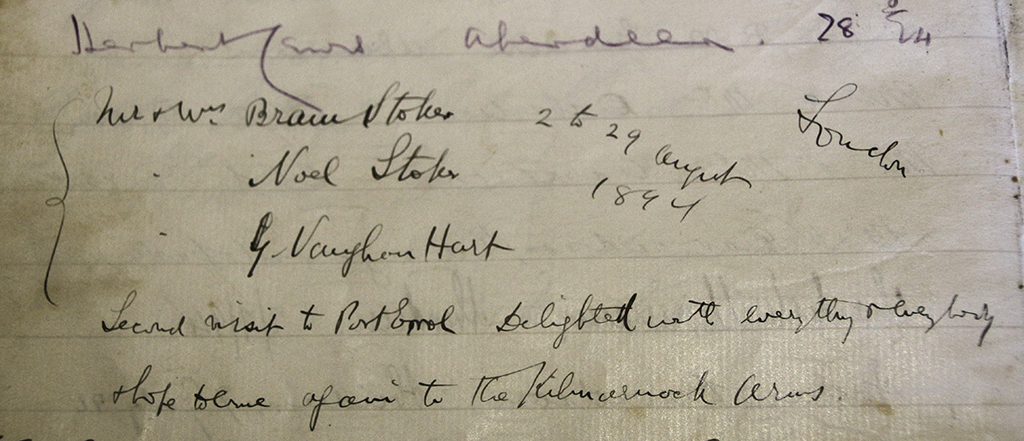 Herbert Aberdeen. 28 8/94
Mr & Mrs Bram Stoker 2 to 29 August 1894 London
" Noel Stoker
" G. Vaughan Hart
Second visit to Port Erroll Delighted with everything & everybody
& hope to come again to the Kilmarnock Arms.